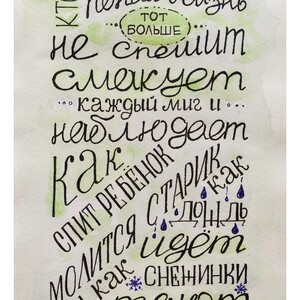 КТО
жизнь
ТОТ
БОЛЬШЕ
не спешит
смакует
каждый миг и
наблюдает
Как
СПИТ РЕБЁНОК
МОЛИТСЯ СТАРИК
как
ДОЖДЬ
идёт
и как
СНЕЖИНКИ